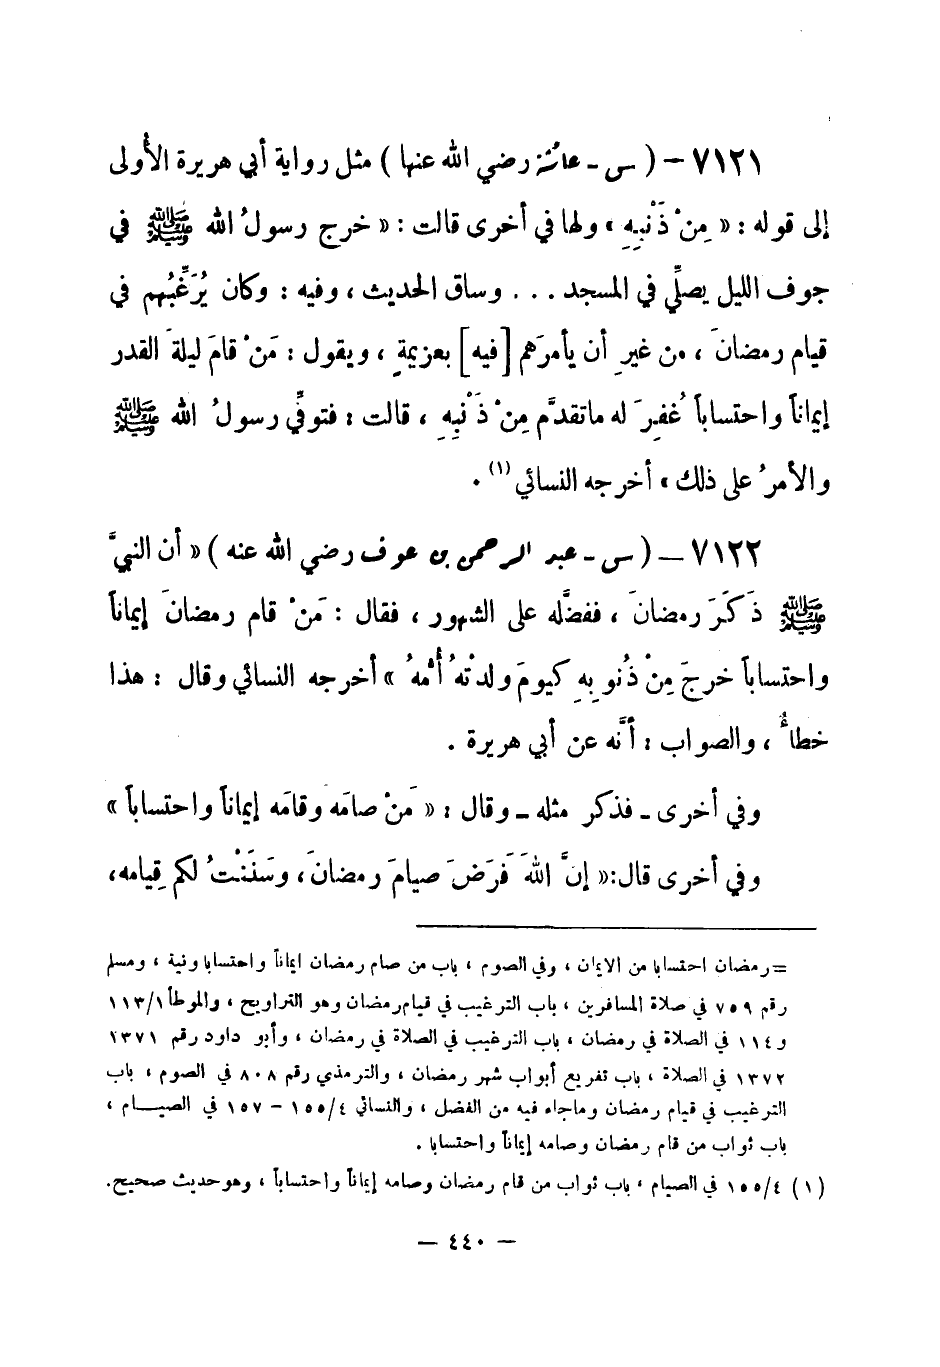 ٧١٢١ – ( س - عائشة رضي الله عنها ) مثل رواية أبي هريرة الأولى
إلى قوله : « مِنْ ذَنْبِهِ » ولها في أخرى قالت : « خرج رسولُ الله ﷺ في
جوف الليل يصلِّي في المسجد ... وساق الحديث ، وفيه : وكان يُرَغِّبُهم في
قيام رمضانَ ، من غيرِ أن يأمرَهم [فيه] بعزيمةٍ ، ويقول : مَنْ قامَ ليلةَ القدر
إيماناً واحتساباً غُفِرَ له ماتقدَّم مِنْ ذَنْبِهِ ، قالت : فتوفِّي رسولُ الله ﷺ
والأمرُ على ذلك » أخرجه النسائي (١) .
٧١٢٢ – ( س - عبد الرحمن بن عوف رضي الله عنه ) « أن النبيَّ
ﷺ ذَكَرَ رمضانَ ، ففضَّله على الشهور ، فقال : مَنْ قام رمضانَ إيماناً
واحتساباً خرجَ مِنْ ذُنُوبِهِ كيومَ ولدتْهُ أُمُّهُ » أخرجه النسائي وقال : هذا
خطأٌ ، والصواب : أنَّه عن أبي هريرة .
وفي أخرى - فذكر مثله - وقال : « مَنْ صامَه وقامَه إيماناً واحتساباً »
وفي أخرى قال: « إنَّ اللهَ فَرَضَ صيامَ رمضانَ، وسَنَنْتُ لكم قِيامه،
= رمضان احتسابا من الايمان ، وفي الصوم ، باب من صام رمضان ايماناً واحتسابا ونية ، ومسلم
رقم ٧٥٩ في صلاة المسافرين ، باب الترغيب في قيام رمضان وهو التراويح ، والموطأ ١١٣/١
و١١٤ في الصلاة في رمضان ، باب الترغيب في الصلاة في رمضان ، وأبو داود رقم ١٣٧١
١٣٧٢ في الصلاة ، باب تفريع أبواب شهر رمضان ، والترمذي رقم ٨٠٨ في الصوم ، باب
الترغيب في قيام رمضان وماجاء فيه من الفضل ، والنسائي ١٥٥/٤ – ١٥٧ في الصيـــام ،
باب ثواب من قام رمضان وصامه إيماناً واحتسابا .
(١) ١٥٥/٤ في الصيام ، باب ثواب من قام رمضان وصامه إيماناً واحتساباً ، وهو حديث صحيح.
– ٤٤٠ –